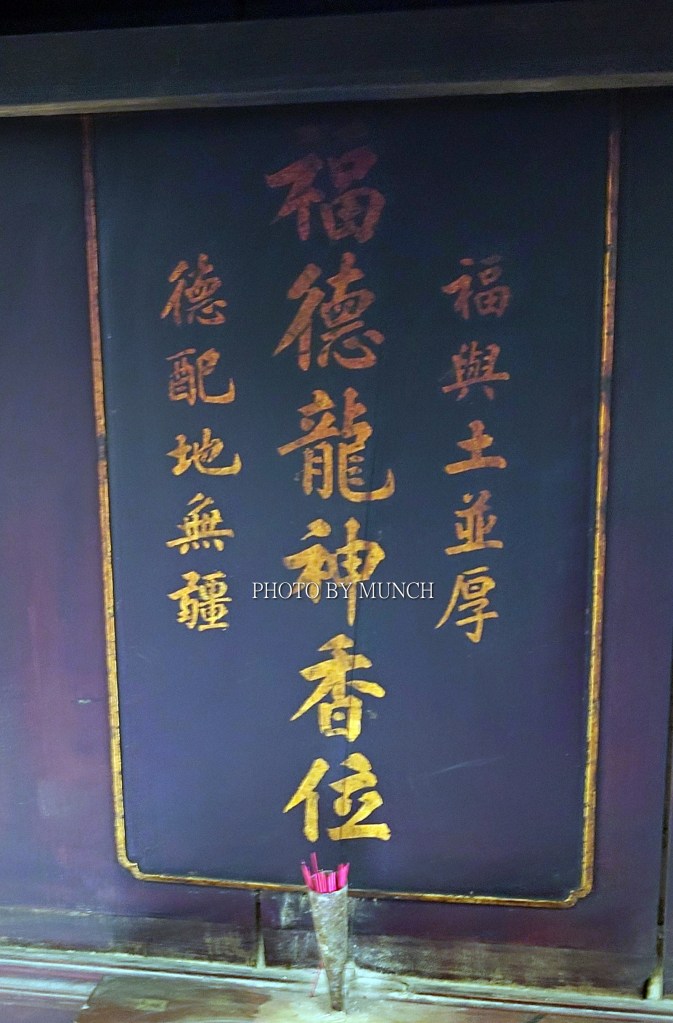 福與土並厚
福德龍神香位
德配地無疆
PHOTO BY MUNCH